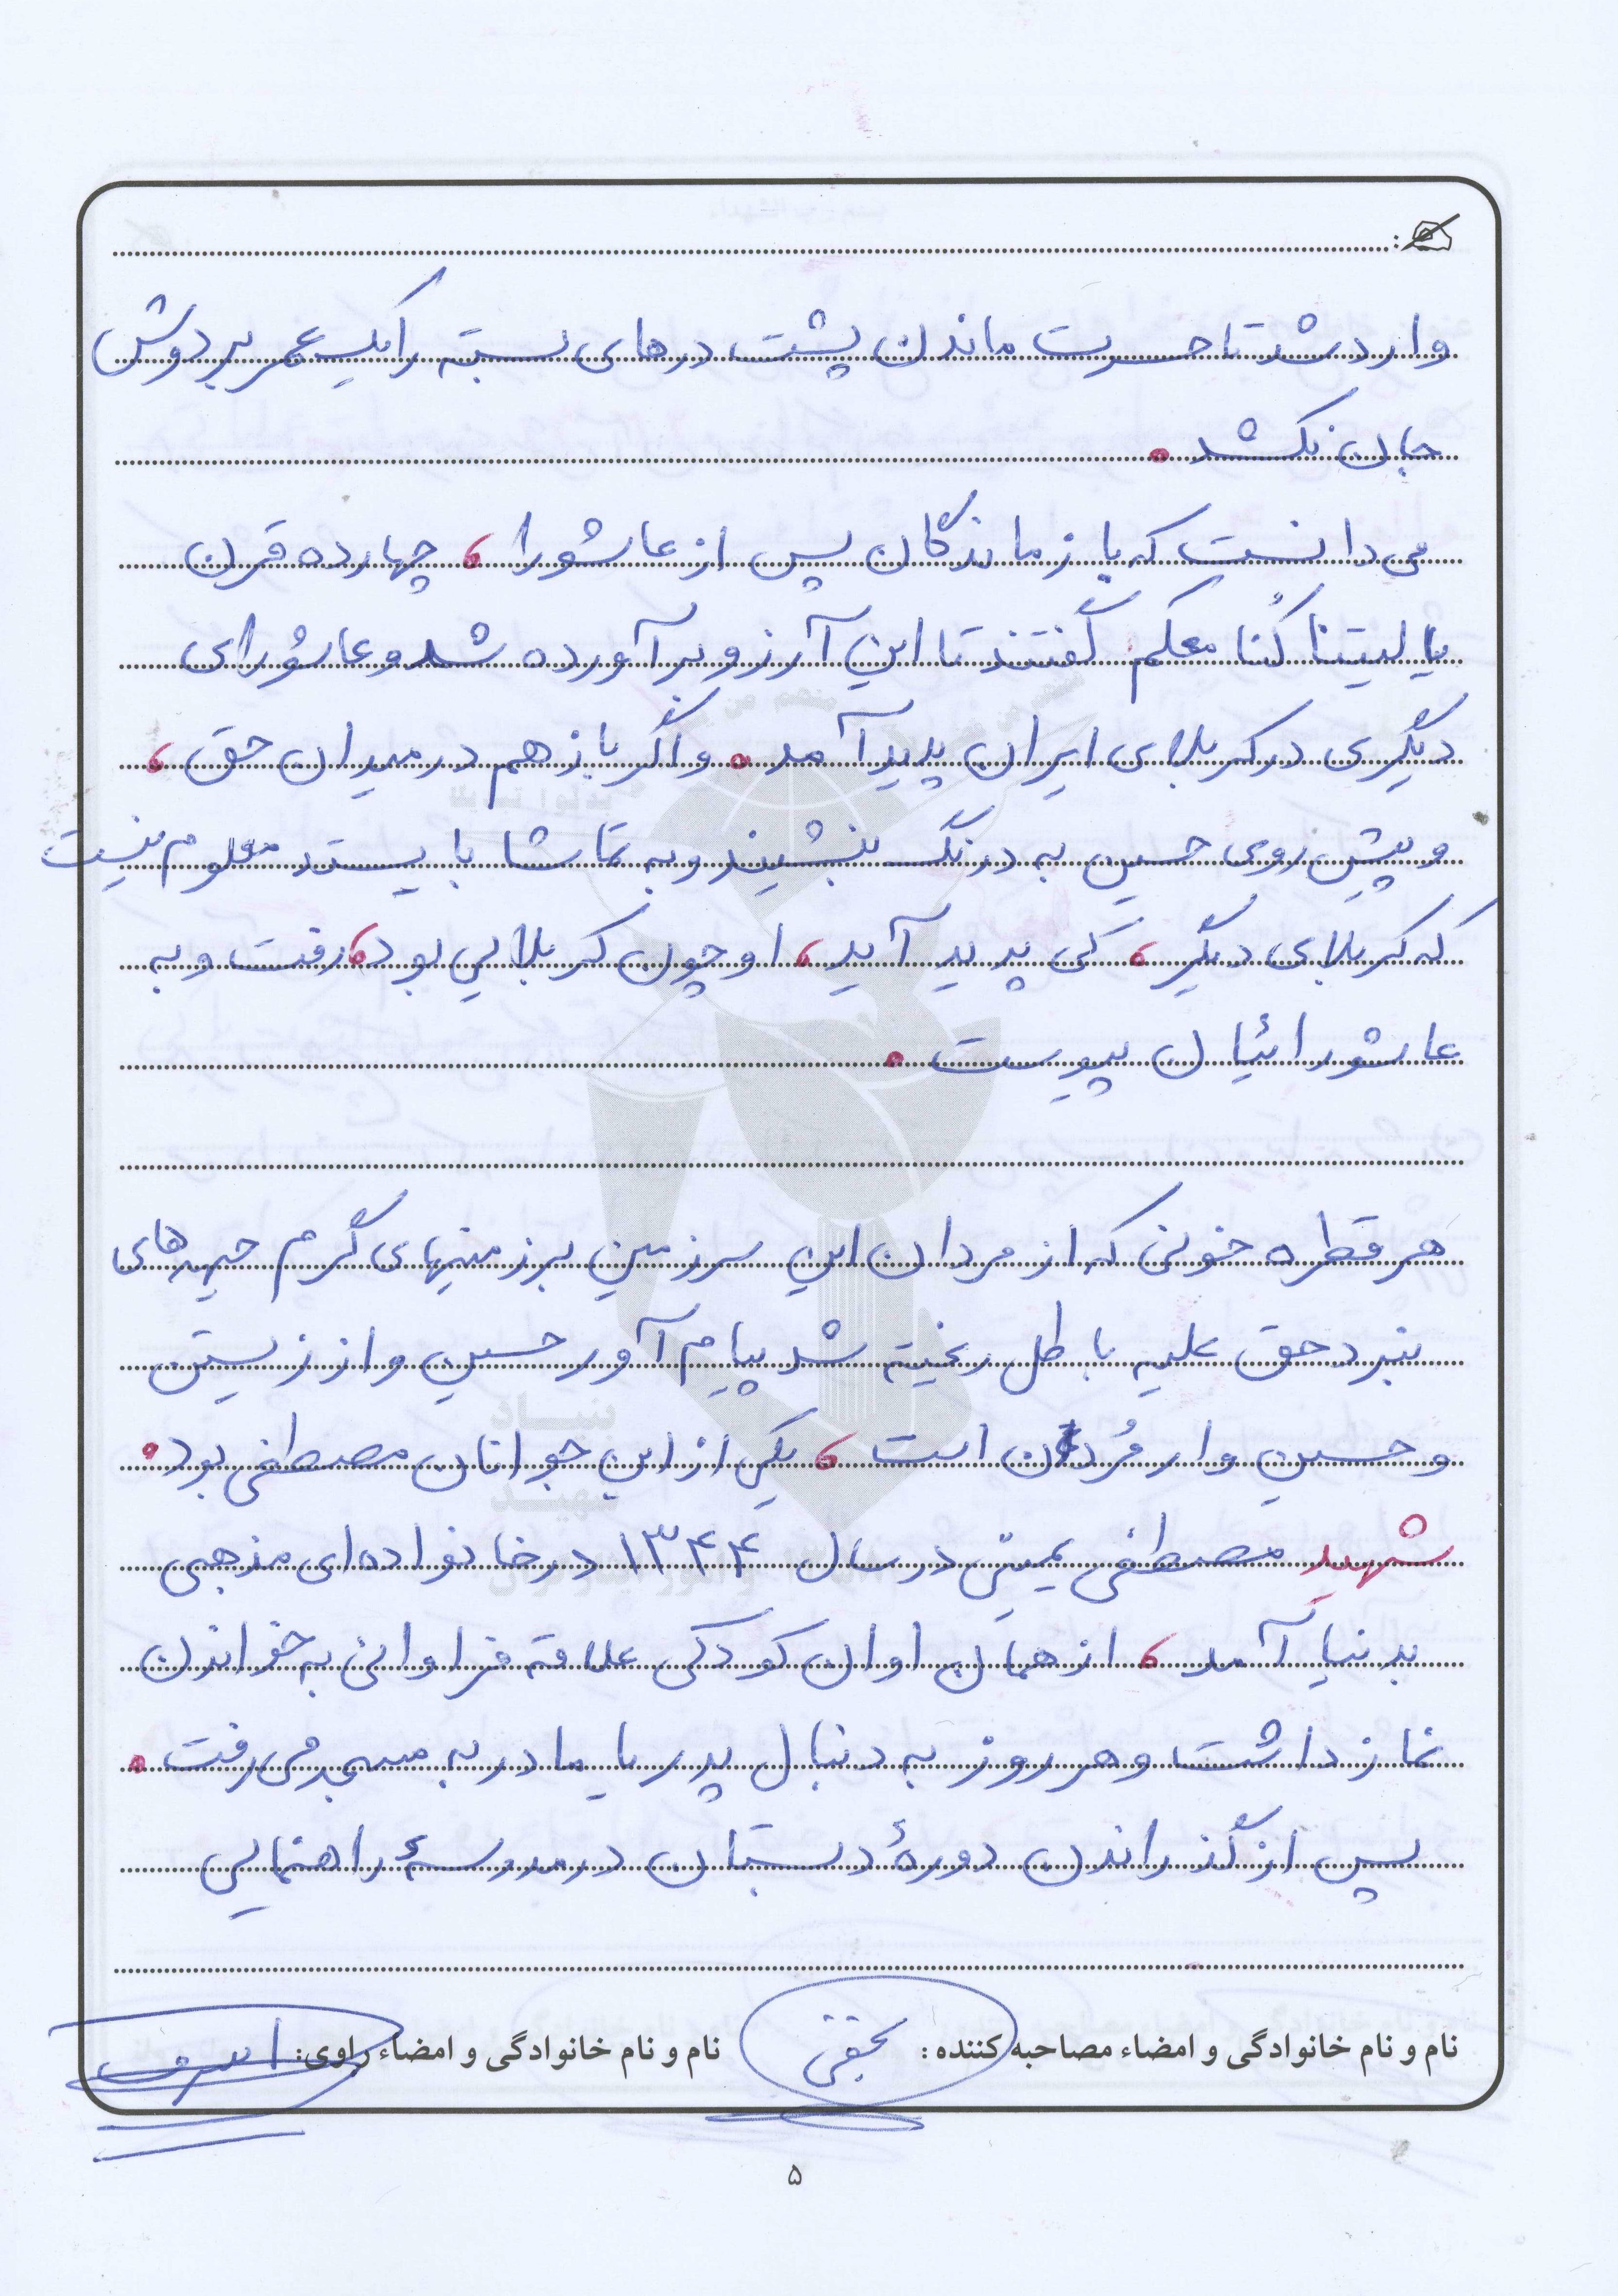 وارد شد تا حسرت ماندن پشت درهای بسته را یک عمر بر دوش
جان نکشد.
می دانست که بازماندگان پس از عاشورا، چهارده قرن
یا لیتنا کُنا معکم گفتند تا این آرزو برآورده شد و عاشورای
دیگری در کربلای ایران پدید آمد. و اگر باز هم در میدان حق،
و پیش روی حسین به درنگ بنشیند و به تماشا بایستد معلوم نیست
که کربلای دیگر، کی پدید آید، او چون کربلایی بود، رفت و به
عاشورائیان پیوست.
هر قطره خونی که از مردان این سرزمین بر زمینهای گرم جبهه های
نبرد حق علیه باطل ریخته شد پیام آور حسین وار زیستن
و حسین وار مُردن است، یکی از این جوانان مصطفی بود.
شهید مصطفی یمینی در سال ۱۳۴۴ در خانواده ای مذهبی
بدنیا آمد، از همان اوان کودکی علاقه فراوانی به خواندن
نماز داشت و هر روز به دنبال پدر یا مادر به مسجد می رفت.
پس از گذراندن دورهٔ دبستان در مدرسهٔ راهنمایی
نام و نام خانوادگی و امضاء مصاحبه کننده: نام و نام خانوادگی و امضاء راوی:
۵